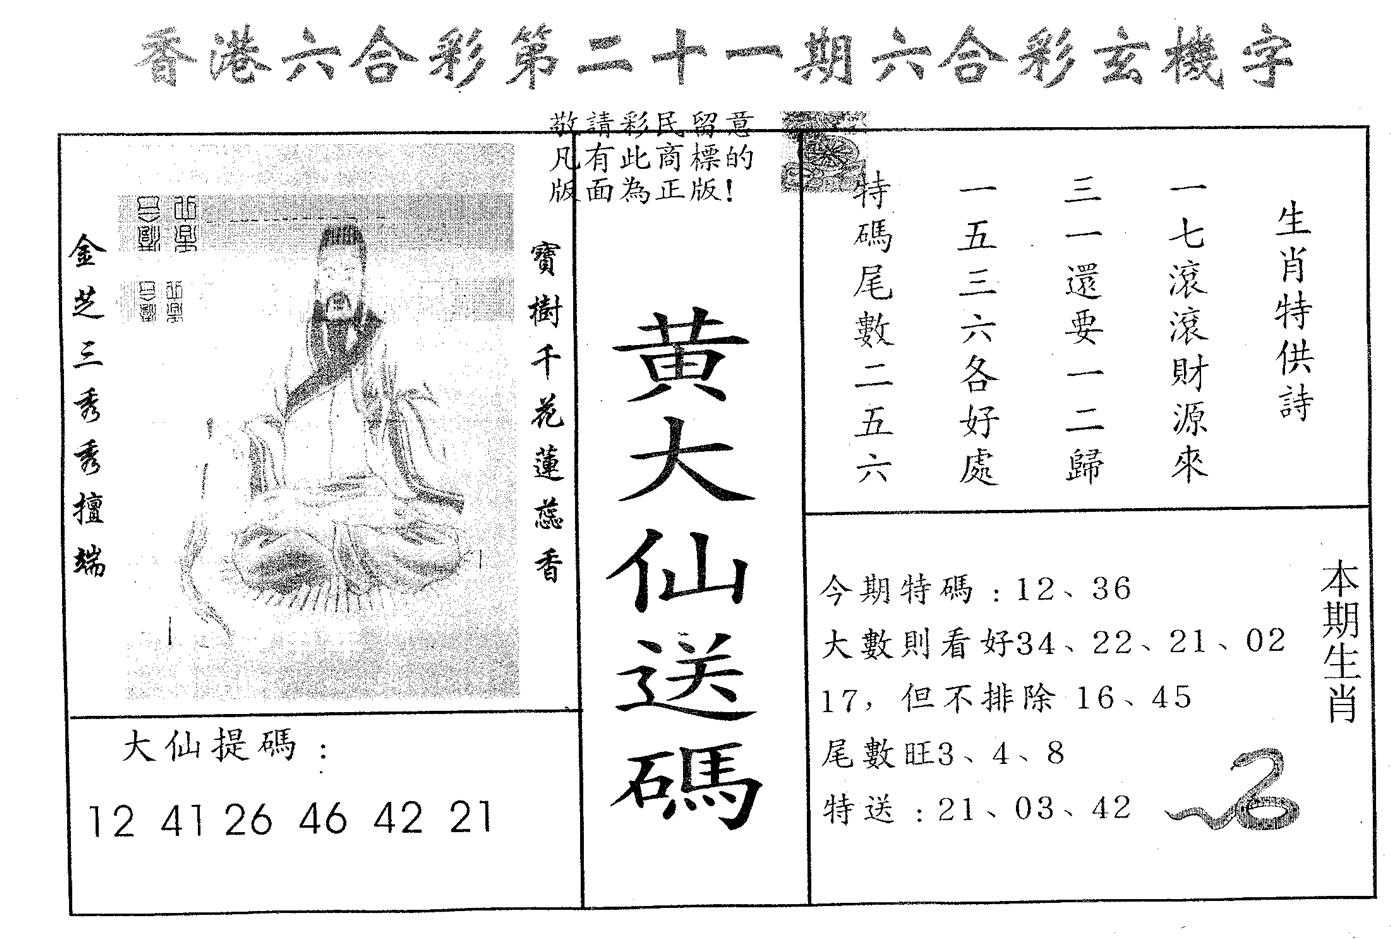 香港六合彩第二十一期六合彩玄機字
敬請彩民留意
凡有此商標的
版面為正版!
金芝三秀秀擅端
寶樹千花蓮蕊香
黄大仙送碼
生肖特供詩
一七滾滾財源來
三一還要一二歸
一五三六各好處
特碼尾數二五六
大仙提碼:
12 41 26 46 42 21
本期生肖
今期特碼:12、36
大數則看好34、22、21、02
17，但不排除 16、45
尾數旺3、4、8
特送:21、03、42